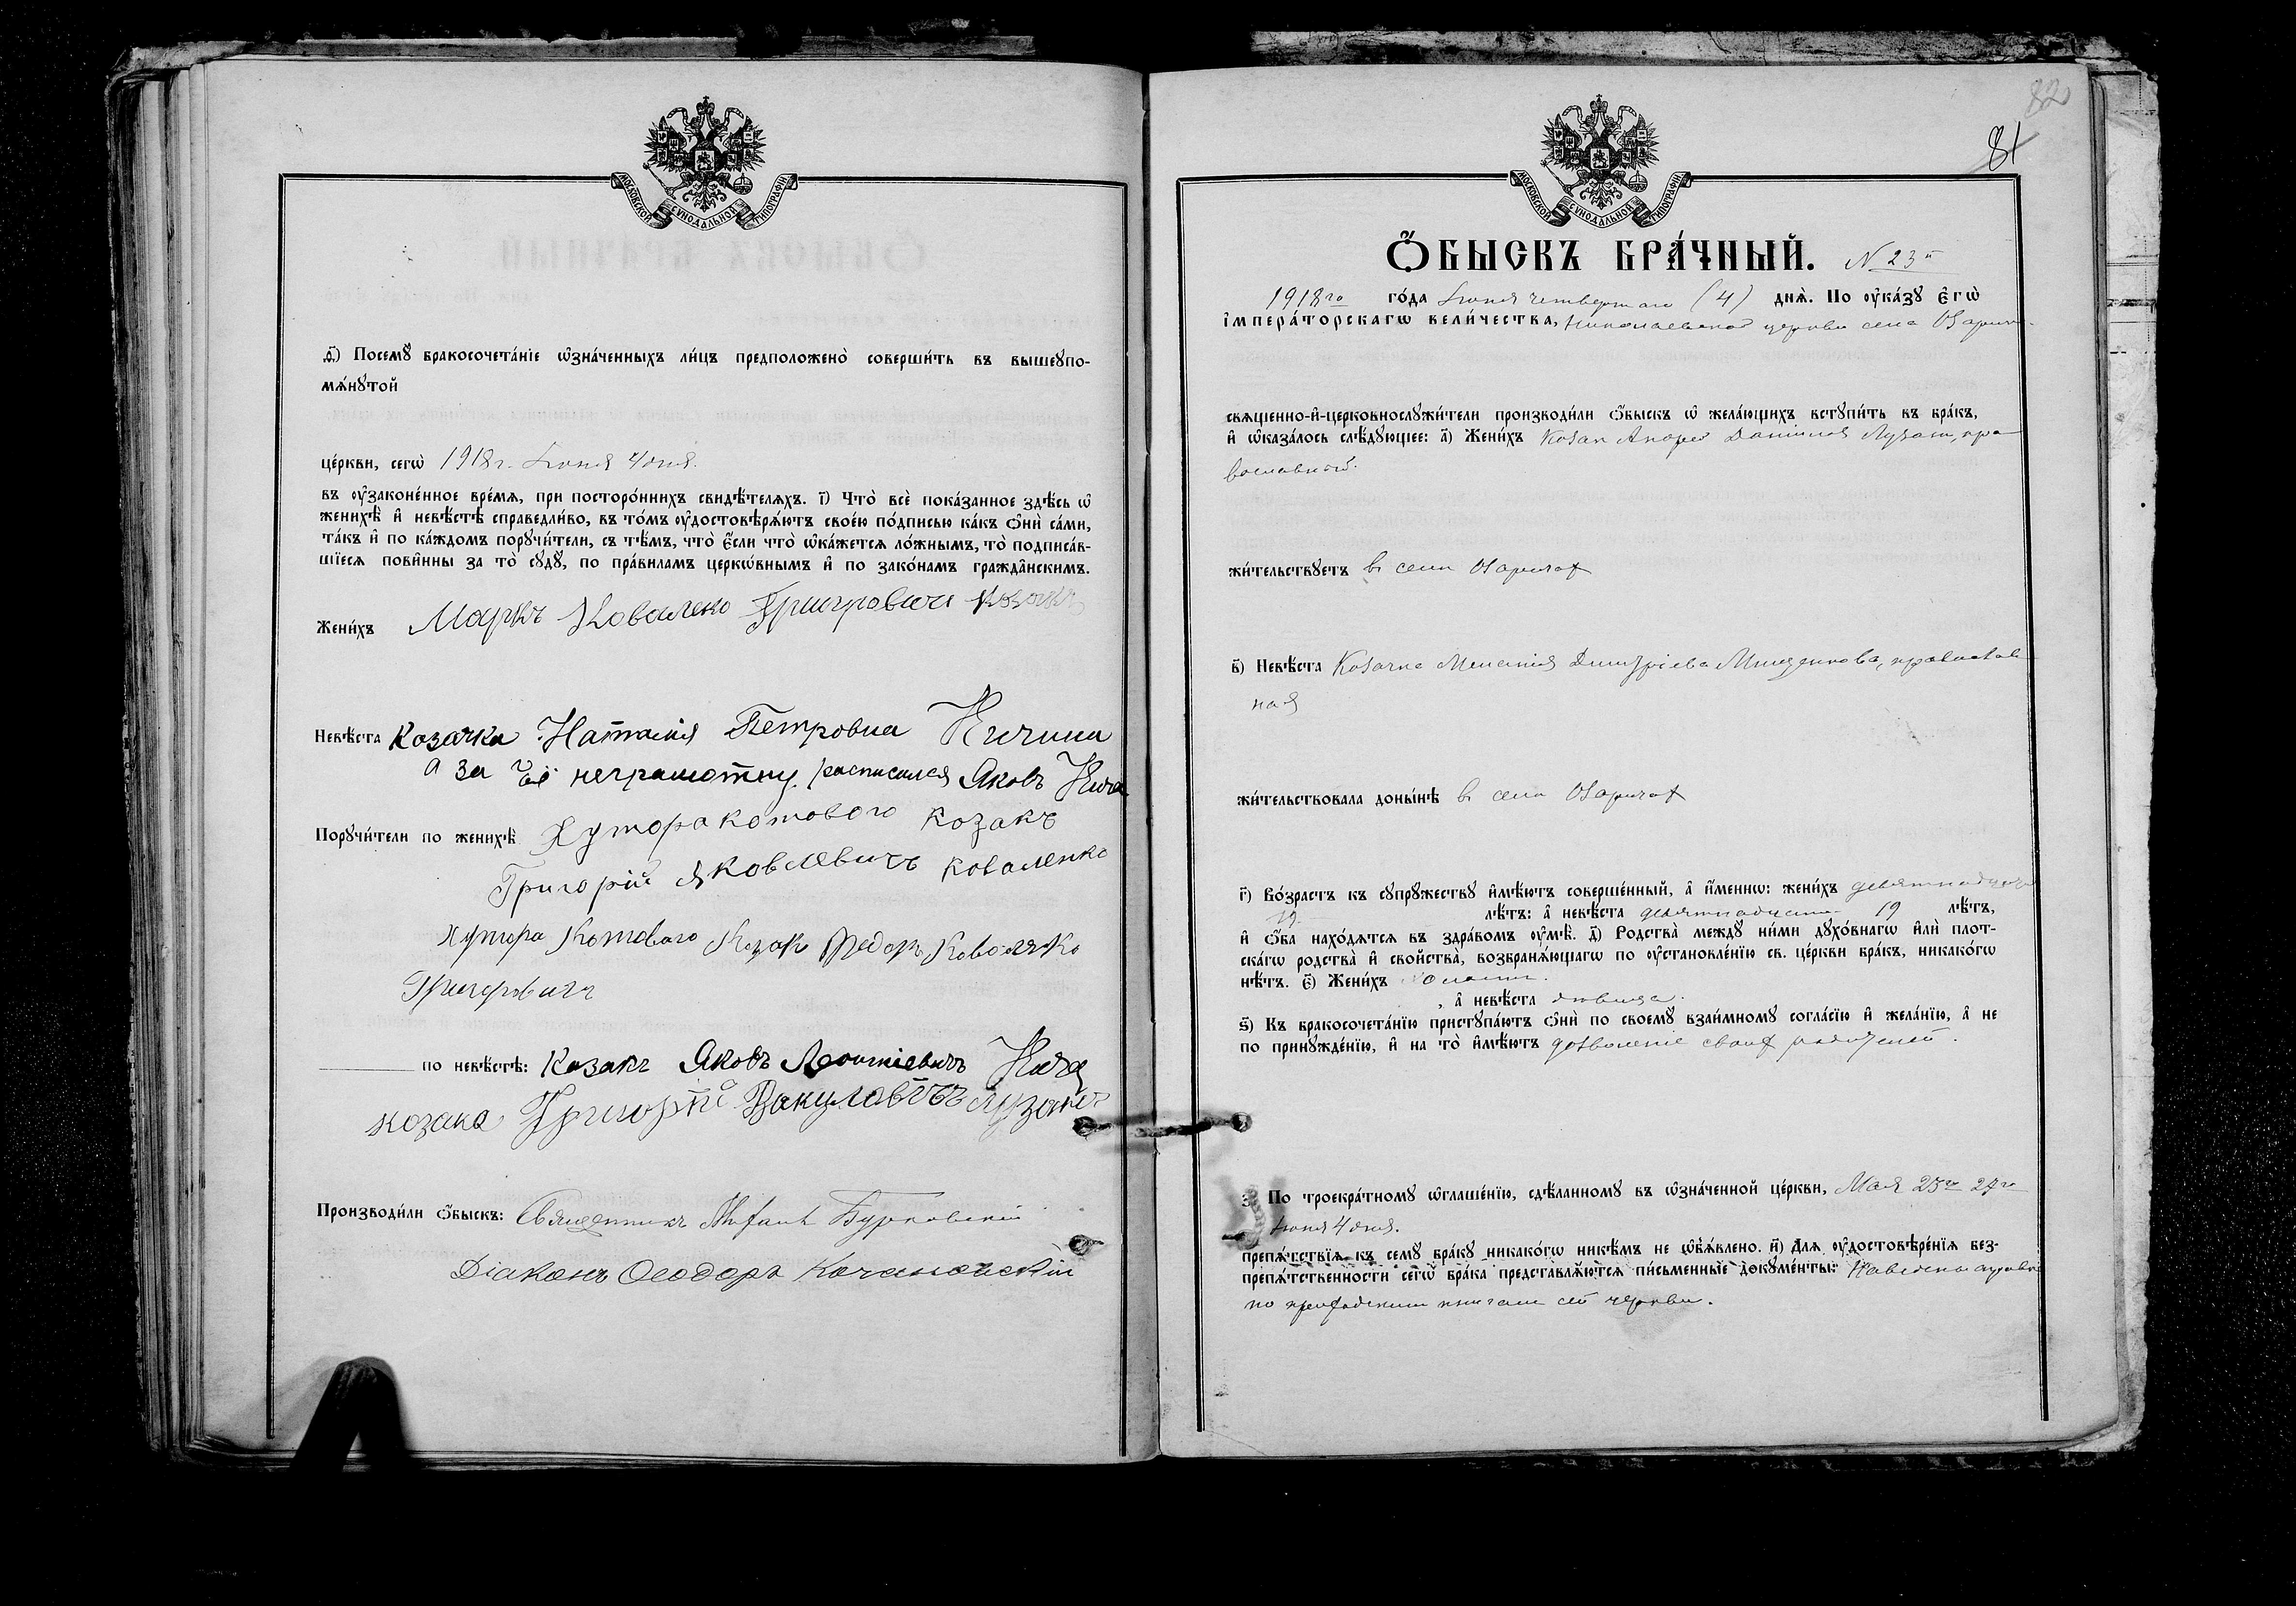 МОСКОВСКОЙ СѴНОДАЛЬНОЙ ТИПОГРАФІИ
ѳ҃) Посемꙋ̀ бракосочета́нїе ѡ҆зна́ченныхъ ли́цъ предположено̀ соверши́ть въ вышеꙋпо-
мѧ́нꙋтой
це́ркви, сегѡ̀ 1918 г. Іюня 4 дня.
въ ᲂу҆законе́нное вре́мѧ, при посторо́ннихъ свидѣ́телѧхъ. і҃) Что̀ всѐ пока́занное здѣ́сь ѡ҆
женихѣ̀ и҆ невѣ́стѣ справедли́во, въ то́мъ ᲂу҆достовѣрѧ́ютъ свое́ю по́дписью ка́къ ѻ҆нѝ са́ми,
та́къ и҆ по ка́ждомъ порꙋчи́тели, съ тѣ́мъ, что̀ є҆́сли что̀ ѡ҆ка́жетсѧ ло́жнымъ, то̀ подписа́в-
шїесѧ пови́нны за то̀ сꙋдꙋ̀, по пра́виламъ церкѡ́внымъ и҆ по зако́намъ гражда̑нскимъ.
Жени́хъ Маркъ Коваленко Григровичъ козакъ
Невѣ́ста Козачка Наталія Петровна Кичина
а за её неграмотну росписался Яковъ Кича
Порꙋчи́тели по женихѣ̀ Хутора Котового козакъ
Григорій Яковлевичъ Коваленко
Хутора Котового Козакъ Федоръ Коваленко
Григоровичъ
по невѣ́стѣ: Козакъ Яковъ Леонтіевичъ Кича
козакъ Григорій Вакуловичъ Лузанъ
Производи́ли ѻ҆́быскъ: Священникъ Бурковскій
Діаконъ Ѳеодоръ Качановскій
82
81
МОСКОВСКОЙ СѴНОДАЛЬНОЙ ТИПОГРАФІИ
Ѻ҆́БЫСКЪ БРА́ЧНЫЙ. N 23й
1918го го́да Іюня четвертаго (4) днѧ̀. По ᲂу҆ка́зꙋ є҆гѡ̀
і҆мпера́торскагѡ вели́чества, Николаевской церкви села
свѧще́нно-и҆-церковнослꙋжи́тели производи́ли ѻ҆́быскъ ѡ҆ жела́ющихъ встꙋпи́ть въ бра́къ,
и҆ ѡ҆каза́лось слѣ́дꙋющее: а҃) Жени́хъ Козакъ Андрей Даніиловъ Лузанъ, пра-
вославный.
жи́тельствꙋетъ въ селѣ Озаричах
в҃) Невѣ́ста Козачка Меланія Димитріева Мищенкова, православ
ная
жи́тельствовала доны́нѣ въ селѣ Озаричах
г҃) Во́зрастъ къ сꙋпрꙋ́жествꙋ и҆мѣ́ютъ соверше́нный, а҆ и҆́меннѡ: жени́хъ девятнадцати
19 лѣ́тъ: а҆ невѣ́ста девятнадцати 19 лѣ́тъ,
и҆ ѻ҆́ба нахо́дѧтсѧ въ здра́вомъ ᲂу҆мѣ̀. д҃) Родства̀ междꙋ ни́ми дꙋхо́внагѡ и҆лѝ плот-
ска́гѡ родства̀ и҆ свойства̀, возбранѧ́ющагѡ по ᲂу҆становле́нїю св. це́ркви бра́къ, никако́гѡ
нѣ́тъ. є҃) Жени́хъ холостъ.
, а҆ невѣ́ста дѣвица.
ѕ҃) Къ бракосочета́нїю пристꙋпа́ютъ ѻ҆нѝ по своемꙋ̀ взаи́мномꙋ согла́сїю и҆ жела́нїю, а҆ не
по принꙋжде́нїю, и҆ на то̀ и҆мѣ́ютъ дозволеніе своих родителей.
з҃) По троекра́тномꙋ ѡ҆глаше́нїю, сдѣ́ланномꙋ въ ѡ҆зна́ченной це́ркви, Мая 23го 27го
Іюня 4 дня.
препѧ́тствїѧ къ семꙋ̀ бра́кꙋ никако́гѡ никѣ́мъ не ѡ҆б̾ѧ́влено. и҃) Длѧ ᲂу҆достовѣре́нїѧ без-
препѧ́тственности сегѡ̀ бра́ка представлѧ́ютсѧ пи́сьменные докꙋме́нты: Наведена справка
по приходским книгам сей церкви.